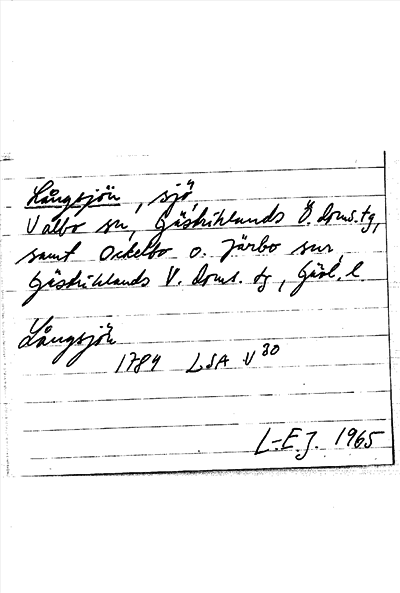 Långsjön, sjö,
Valbo sn, Gästriklands Ö. doms.tg,
samt Ockelbo o. Järbo snr,
Gästriklands V. doms. tg, Gävl. l.
Långsjön
1784 LSA V 30
L-E.J. 1965